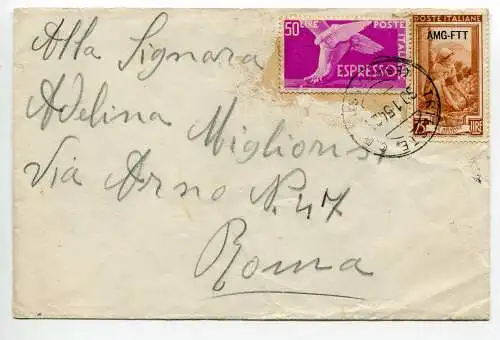 Alla Signora
Adelina Migliorisi
Via Arno N. 47
Roma
50 LIRE POSTE ITALIANE
ESPRESSO
POSTE ITALIANE
AMG-FTT
LIRE